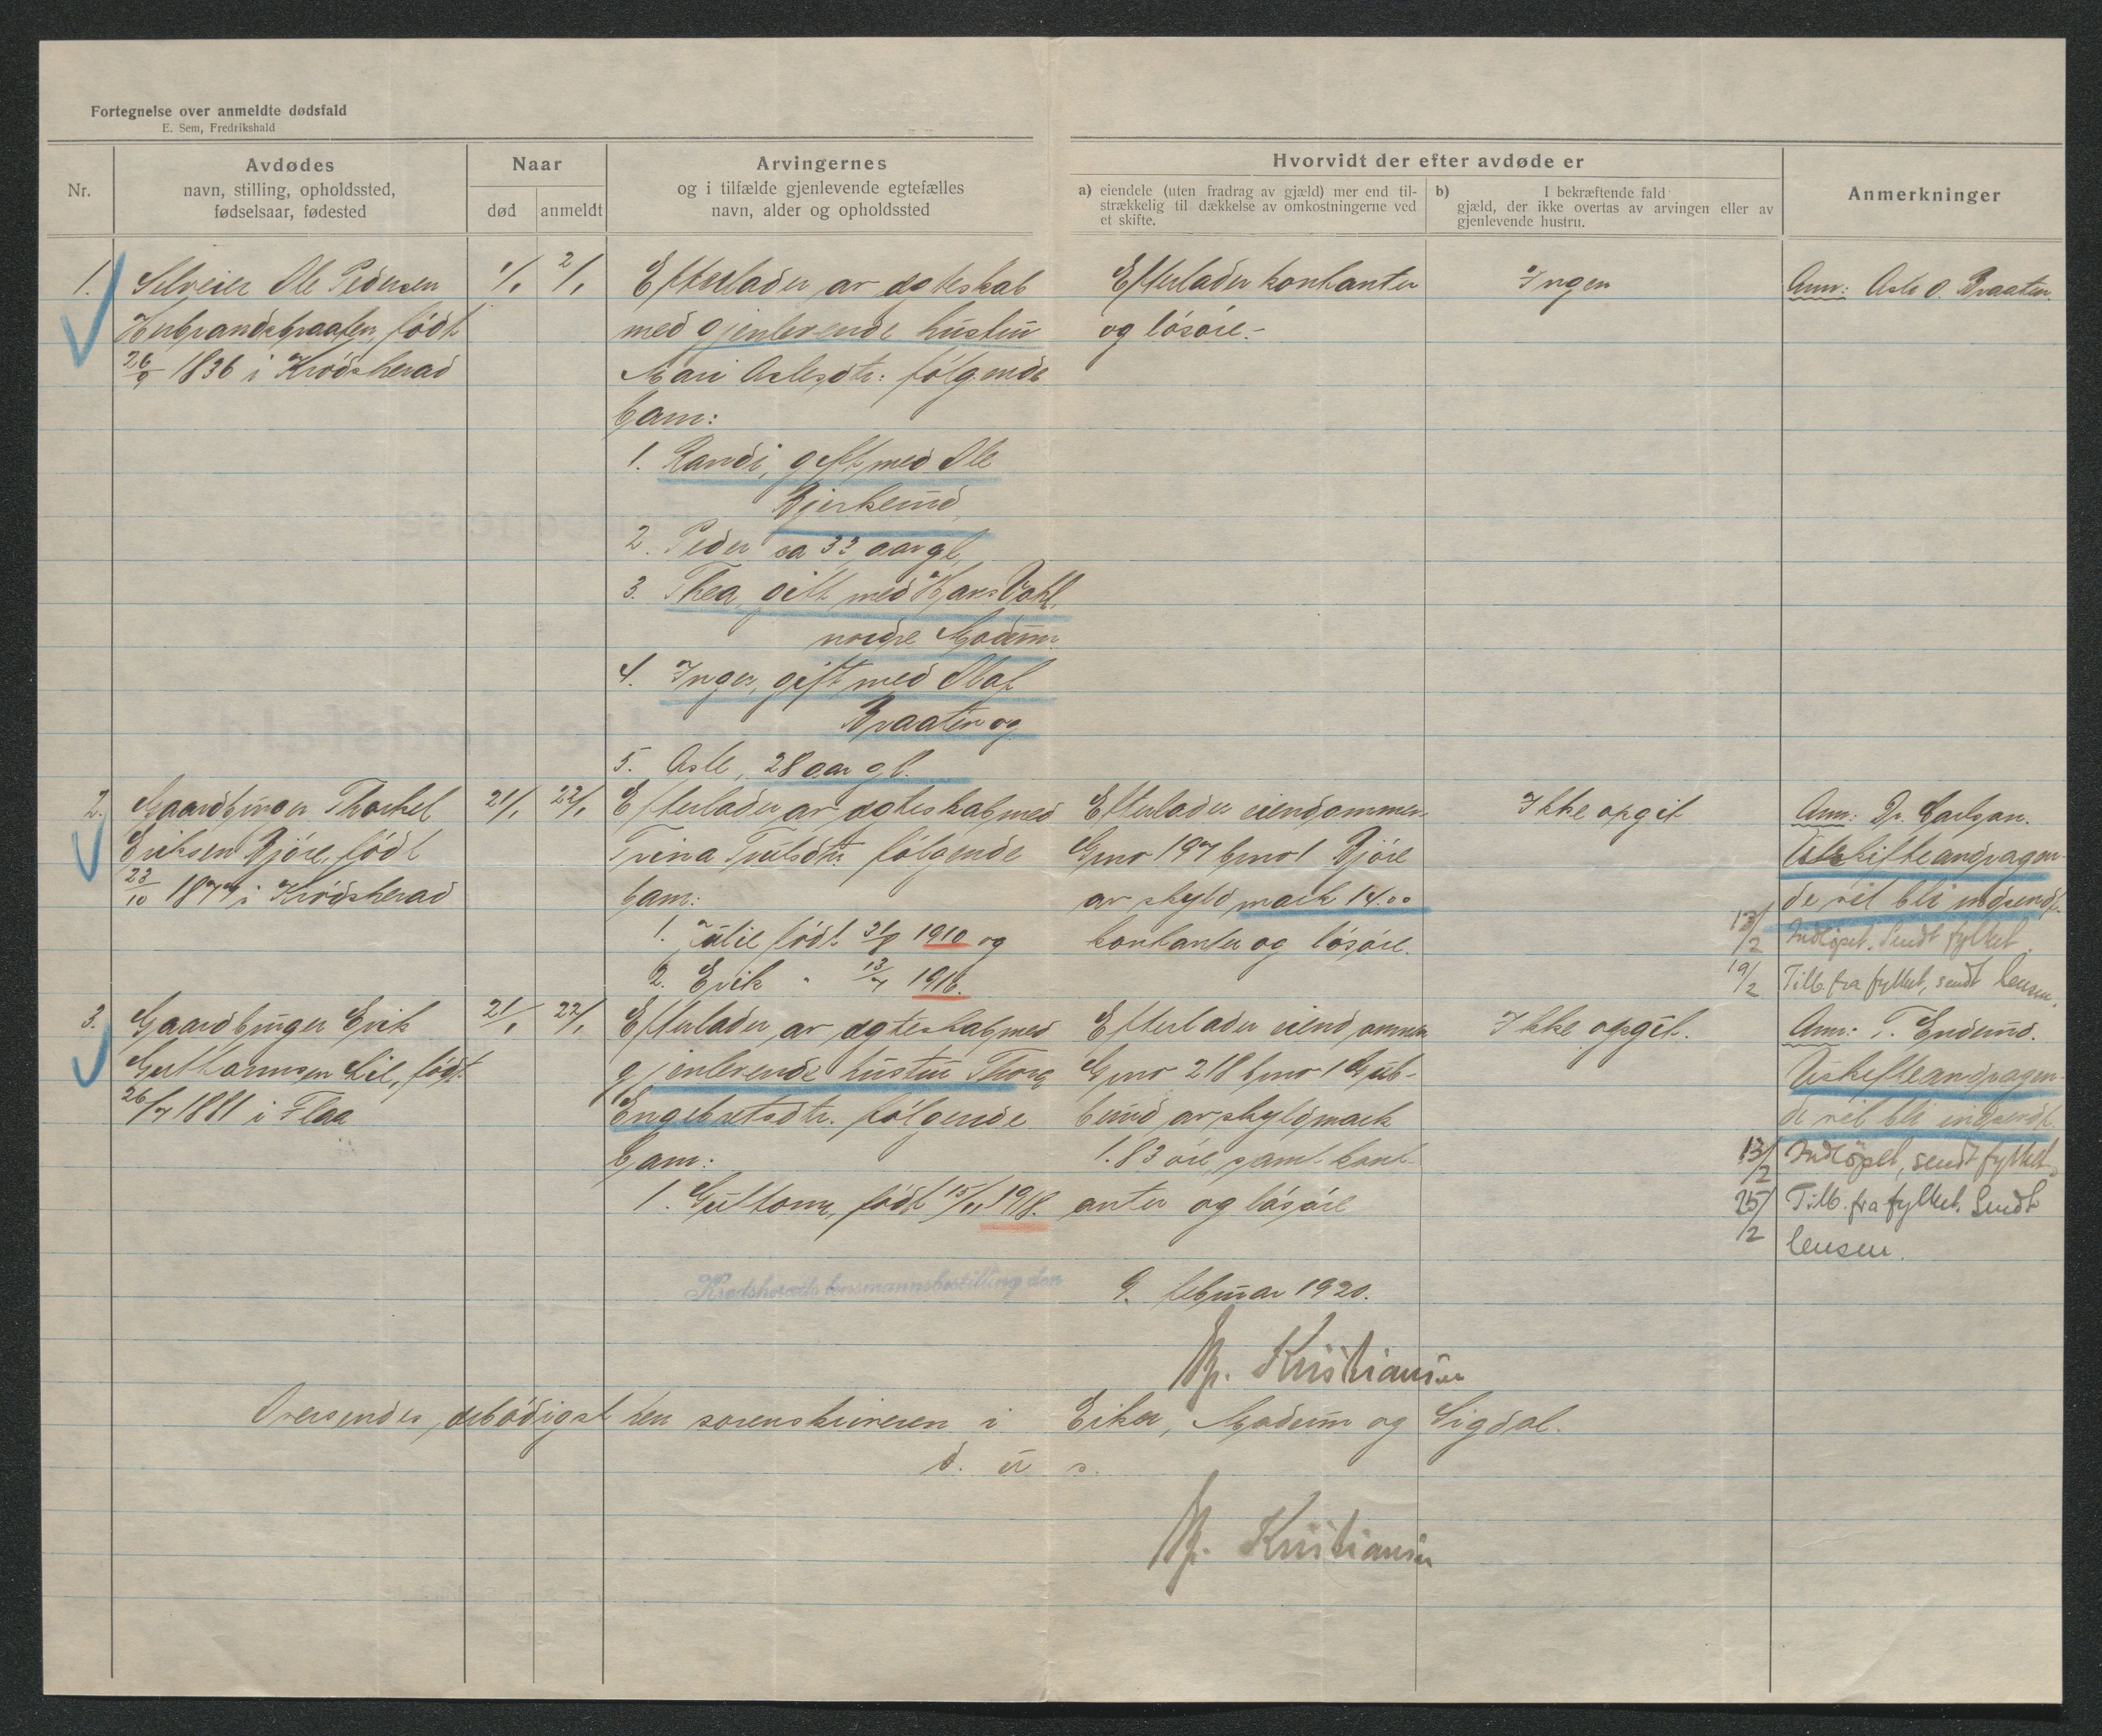 Fortegnelse over anmeldte dødsfald
E. Sem, Fredrikshald
Nr.
Avdødes
navn, stilling, opholdssted,
fødselsaar, fødested
Naar
død
anmeldt
Arvingernes
og i tilfælde gjenlevende egtefælles
navn, alder og opholdssted
Hvorvidt der efter avdøde er
a) eiendele (uten fradrag av gjæld) mer end til-
strækkelig til dækkelse av omkostningerne ved
et skifte.
b) I bekræftende fald
gjæld, der ikke overtas av arvingen eller av
gjenlevende hustru.
Anmerkninger
1. Selveier Ole Pedersen
Herbrandsbraaten, født
26/9 1836 i Krødsherad
1/1
2/1
Efterlader av egteskab
med gjenlevende hustru
Mari Aslesdtr. følgende
barn:
1. Randi, gift med Ole
Bjerkerud
2. Peder ca 33 aar gl.
3. Thea gift med Hans
nordre Modum.
4. Inger, gift med Olaf
Braaten og
5. Asle, 28 aar gl.
Efterlader kontanter
og løsøre.
Ingen
Anm: Asle O. Braaten.
2. Gaardbruger Thorkel
Eriksen Bjøre, født
23/10 1877 i Krødsherad
21/1
22/1
Efterlader av egteskab med
Trina Trulsdtr. følgende
barn:
1. Julie født 31/8 1910 og
2. Erik " 13/7 1916.
Efterlader eiendommen
Gno 197 bno 1 Bjøre
av skyld mark 14.00
kontanter og løsøre.
Ikke opgit
Anm: Dr. Carlson.
Uskifteandragen-
de vil bli indsendt.
13/2 Indløpet. Sendt fylket.
19/2 Tilb. fra fylket, sendt lensm.
3. Gaardbruger Erik
Guttormsen Lie, født
26/7 1881 i Flaa
21/1
22/1
Efterlader av egteskab med
gjenlevende hustru Thora
Engebretsdtr. følgende
barn:
1. Guttorm, født 15/11 1918.
Efterlader eiendommen
Gno 218 bno 1 Gub-
berud av skyldmark
1.83 øre samt kont-
anter og løsøre
Ikke opgit.
Anm: T. Enderud.
Uskifteandragen-
de vil bli indsendt.
13/2 Indløpet, sendt fylket.
25/2 Tilb. fra fylket. Sendt
lensm.
Krødsherads lensmannsbestilling den
9. februar 1920.
Kristiansen
Oversendes ærbødigst herr sorenskriveren i Eiker, Modum og Sigdal.
d. u s.
Kristiansen